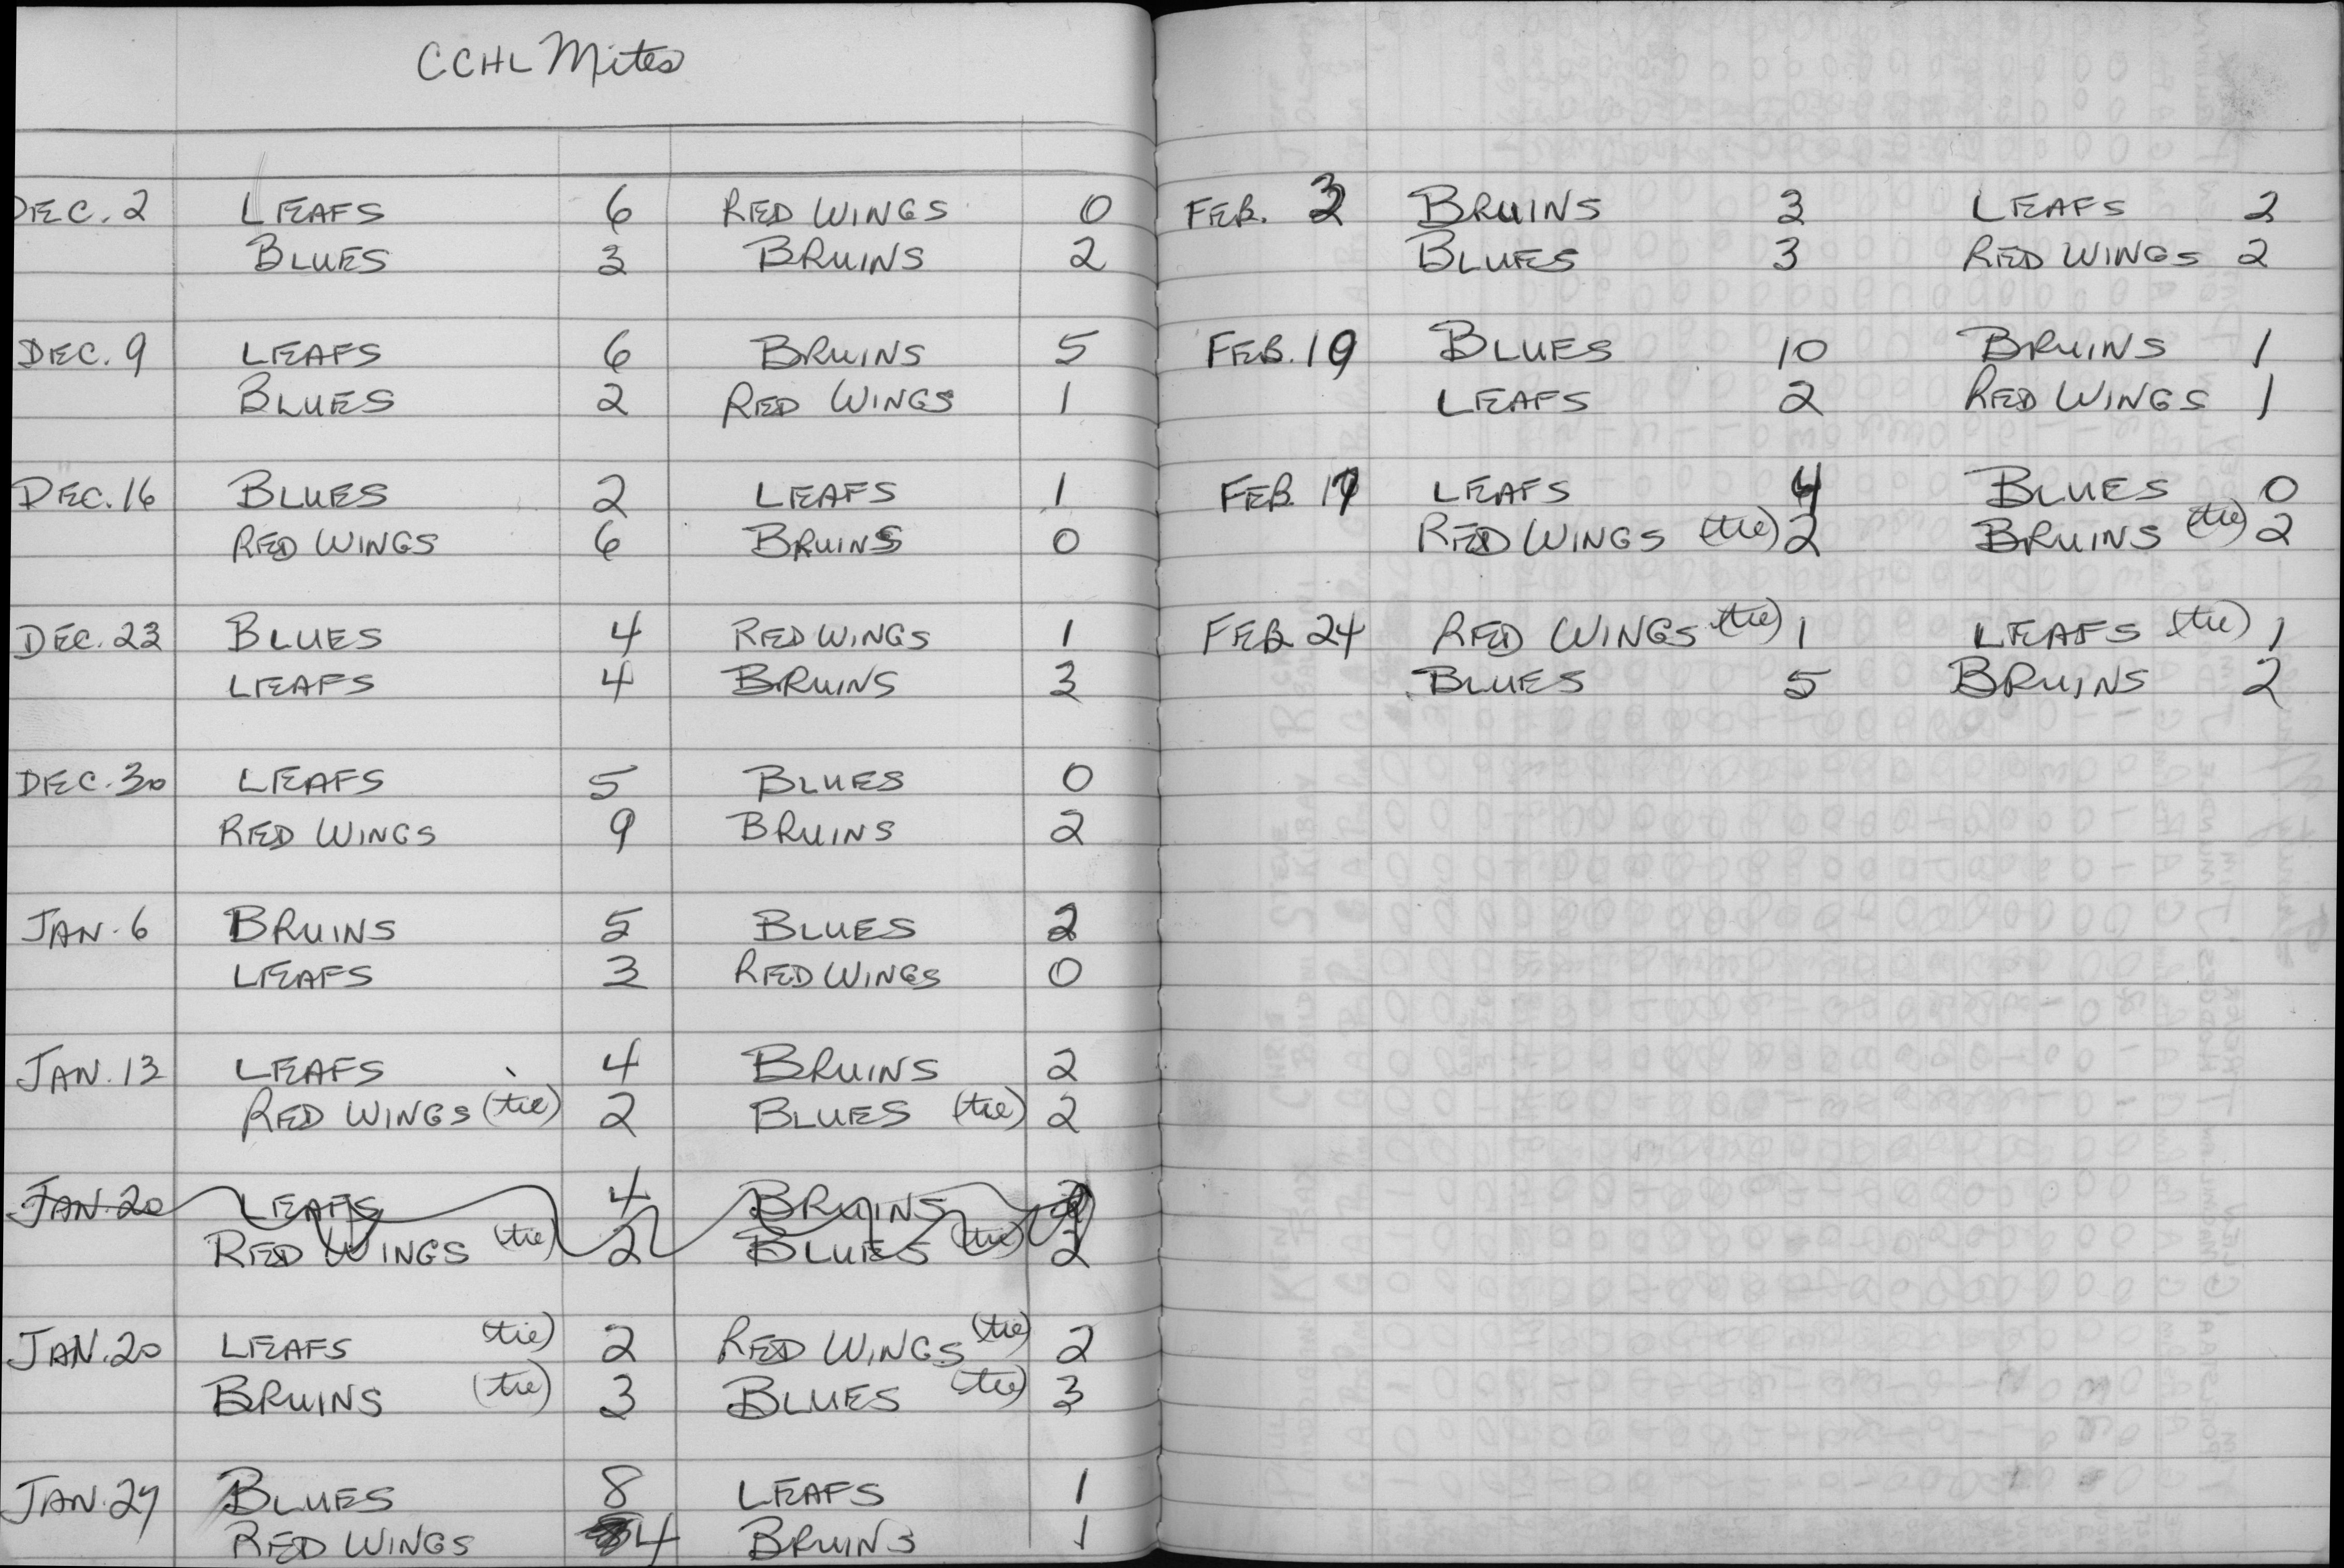 CCHL Mites
DEC. 2 LEAFS 6 RED WINGS 0
BLUES 3 BRUINS 2
DEC. 9 LEAFS 6 BRUINS 5
BLUES 2 RED WINGS 1
DEC. 16 BLUES 2 LEAFS 1
RED WINGS 6 BRUINS 0
DEC. 23 BLUES 4 RED WINGS 1
LEAFS 4 BRUINS 3
DEC. 30 LEAFS 5 BLUES 0
RED WINGS 9 BRUINS 2
JAN. 6 BRUINS 5 BLUES 2
LEAFS 3 RED WINGS 0
JAN. 13 LEAFS 4 BRUINS 2
RED WINGS (tie) 2 BLUES (tie) 2
JAN. 20 LEAFS 4 BRUINS
RED WINGS (tie) 2 BLUES (tie) 2
JAN. 20 LEAFS (tie) 2 RED WINGS (tie) 2
BRUINS (tie) 3 BLUES (tie) 3
JAN. 27 BLUES 8 LEAFS 1
RED WINGS 4 BRUINS 1
FEB. 3 BRUINS 3 LEAFS 2
BLUES 3 RED WINGS 2
FEB. 10 BLUES 10 BRUINS 1
LEAFS 2 RED WINGS 1
FEB. 17 LEAFS 4 BLUES 0
RED WINGS (tie) 2 BRUINS (tie) 2
FEB 24 RED WINGS (tie) 1 LEAFS (tie) 1
BLUES 5 BRUINS 2